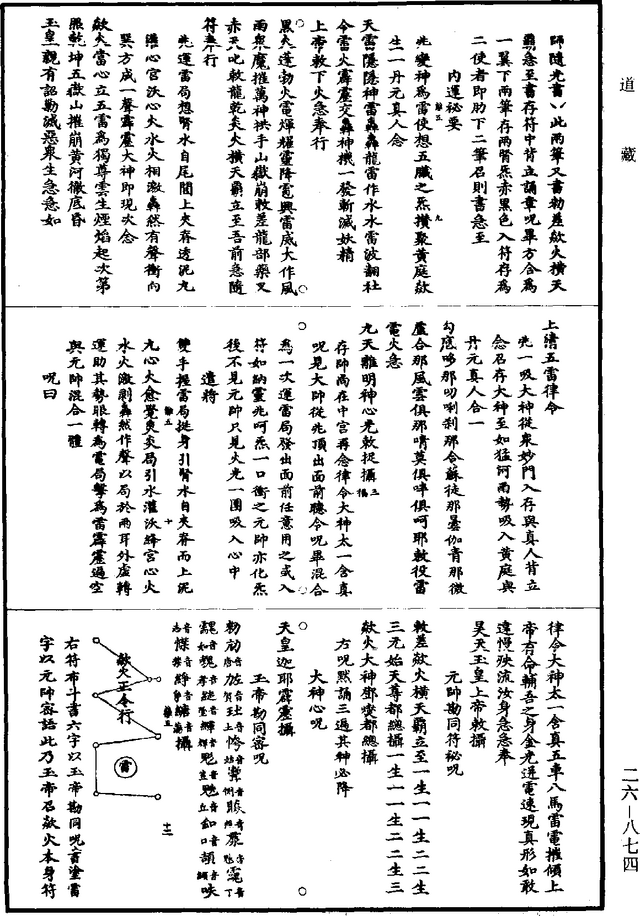 道藏
師隨光書以此兩筆又書勑差歘火橫天
霸急至書存符中背立誦章呪畢方合爲
一翼下兩筆存兩腎炁赤黑色入符存爲
二使者即肋下二筆召則書急至
內運祕要
先變神爲雷使想五臟之炁攅聚黃庭歘
生一丹元真人念
天雷隱隱神雷轟轟龍雷作水水雷波翻社
令雷火霹靂交轟神機一發斬滅妖精
上帝敕下火急奉行
黑火蓬勃火電煇耀靈降電興雷威大作風
雨興魔摧萬神拱手山嶽崩敕差龍部藥叉
赤天叱敕龍乾炎火橫天霸立至吾前急隨
符奉行
先運雷局想腎水自尾閭上夾脊透泥九
灌心宮沃心火水火相激轟然有聲衝向
巽方成一聲霹靂大神即現次念
歘火當心立五雷爲獨尊雲生煙焰起次第
照乾坤五嶽山摧崩黃河徹底昏
玉皇親有詔勑滅惡衆生急急如
上清五雷律令
先一吸大神從衆妙門入存與真人背立
念召存大神至如猛河雨勢吸入黃庭與
丹元真人合一
勾底哆那叨唎剎那合蘇徒那曇伽青那微
蘆合那風雲俱那嘖莫俱吽俱呵耶敕役雷
電火急
九天雛明神心光敕捉攝
存師尚在中宮再念律令大神太一含真
呪見大師從兆頂出面前聽令呪畢混合
爲一次運雷局發出面前任意用之或入
符如納靈兆呵炁一口衝之元師亦化炁
後不見元帥只見火光一團吸入心中
遣將
雙手握雷局挺身引腎水自夾脊而上泥
九心火愈覺炎炎局引水灌沃絳宮心火
水火激剝轟然作聲以局於兩耳外虛轉
運助其勢眼轉爲電局擊爲雷霹靂過空
與元帥混合一體
呪曰
律令大神太一含真五車八馬雷電摧傾上
帝有命輔吾之身金光迸電速現真形如敢
違慢殃流汝身急急奉
昊天玉皇上帝敕攝
元帥勘同符祕呪
敕差歘火橫天霸立至一生一一生二二生
三元始天尊都總攝一生一一生二二生三
歘火大神鄧燮都總攝
方呪黙誦三遍其神必降
大神心呪
天皇迦耶霹靂攝
玉帝勘同密呪
歘火正令行
雷
右符布斗書六字以玉帝勘同呪書塗雷
字以元帥密語此乃玉帝召歘火本身符
二六—八七四